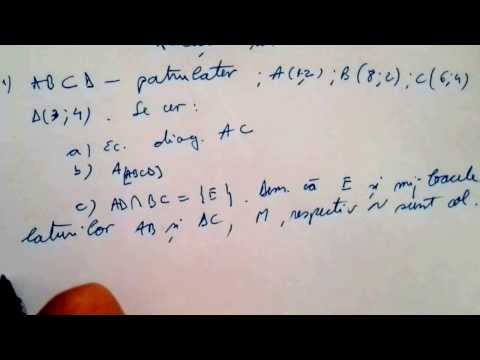 1) ABCD – patrulater ; A(1;2) ; B(8;2) ; C(6;4)
D(3;4) . Se cer :
a) Ec. diag. AC
b) A[ABCD]
c) AD∩BC = {E} . Dem. că E și mijloacele
laturilor AB și DC, M, respectiv N sunt col.